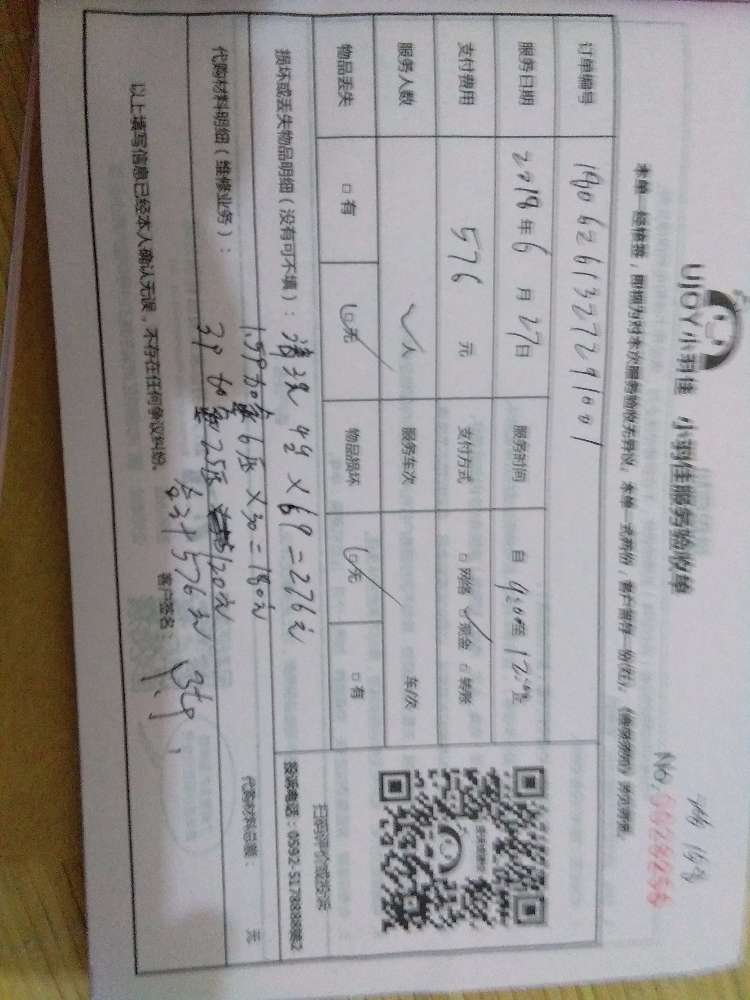 UJOY小羽佳 小羽佳服务验收单
No.
本单一经接签,即视为对本次服务验收无异议。本单一式两份,客户留存一份(红)。
订单编号 1806261327291001
服务日期 2018年6月27日 服务时间 自9:00至12:00
支付费用 576元 支付方式 □网络 ☑现金 □转账
服务人数 人 服务车次 车/次
物品丢失 □有 ☑无 物品损坏 ☑无 □有
扫码评价或投诉
投诉电话:0592-5178888転2
损坏或丢失物品明细(没有可不填): 清洗 4台×69=276元
1.5P加氟6压×30=180元
代购材料明细(维修业务): 代购材料总额: 元
3P加氟 25压 120元
合计576元
以上填写信息已经本人确认无误,不存在任何争议纠纷。 客户签名: